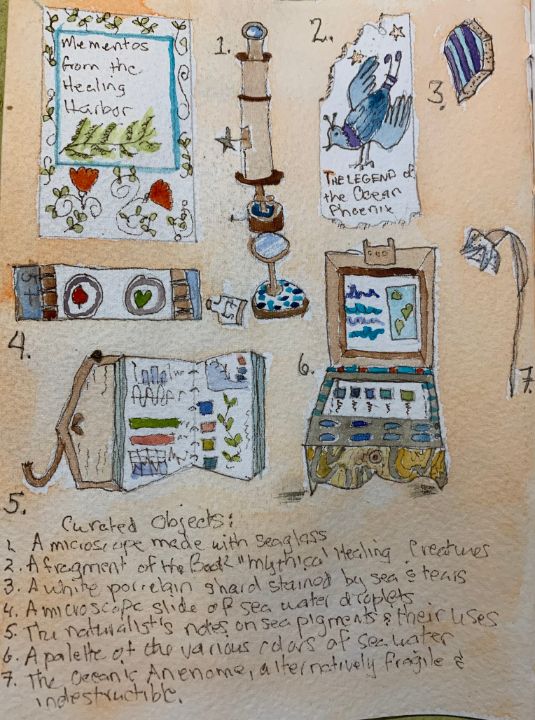 Mementos
from the
Healing
Harbor
1.
2.
THE LEGEND of
the Ocean
Phoenix
3.
4.
5.
6.
7.
Curated Objects:
1. A microscope made with seaglass
2. A fragment of the Book "Mythical Healing Creatures
3. A white porcelain shard stained by sea & tears
4. A microscope slide of sea water droplets
5. The naturalist's notes on sea pigments & their uses
6. A palette of the various colors of sea water
7. The Oceanic Anenome, alternatively fragile &
indestructible.